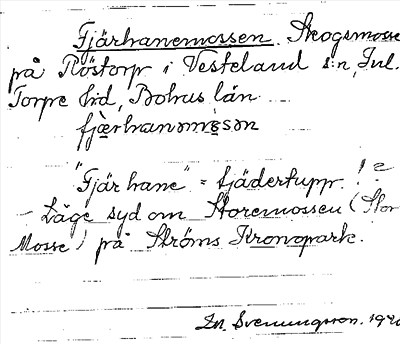 Fjärhanemossen. Skogsmosse
på Röstorp i Vesteland s:n, Inl.
Torpe hd, Bohus län
fjærhanəmo̝sən
"Fjärhane" = tjädertupp. !?
- Läge syd om Storemossen (Stor
Mosse) på Ströms Kronopark.
Sveningsson. 19